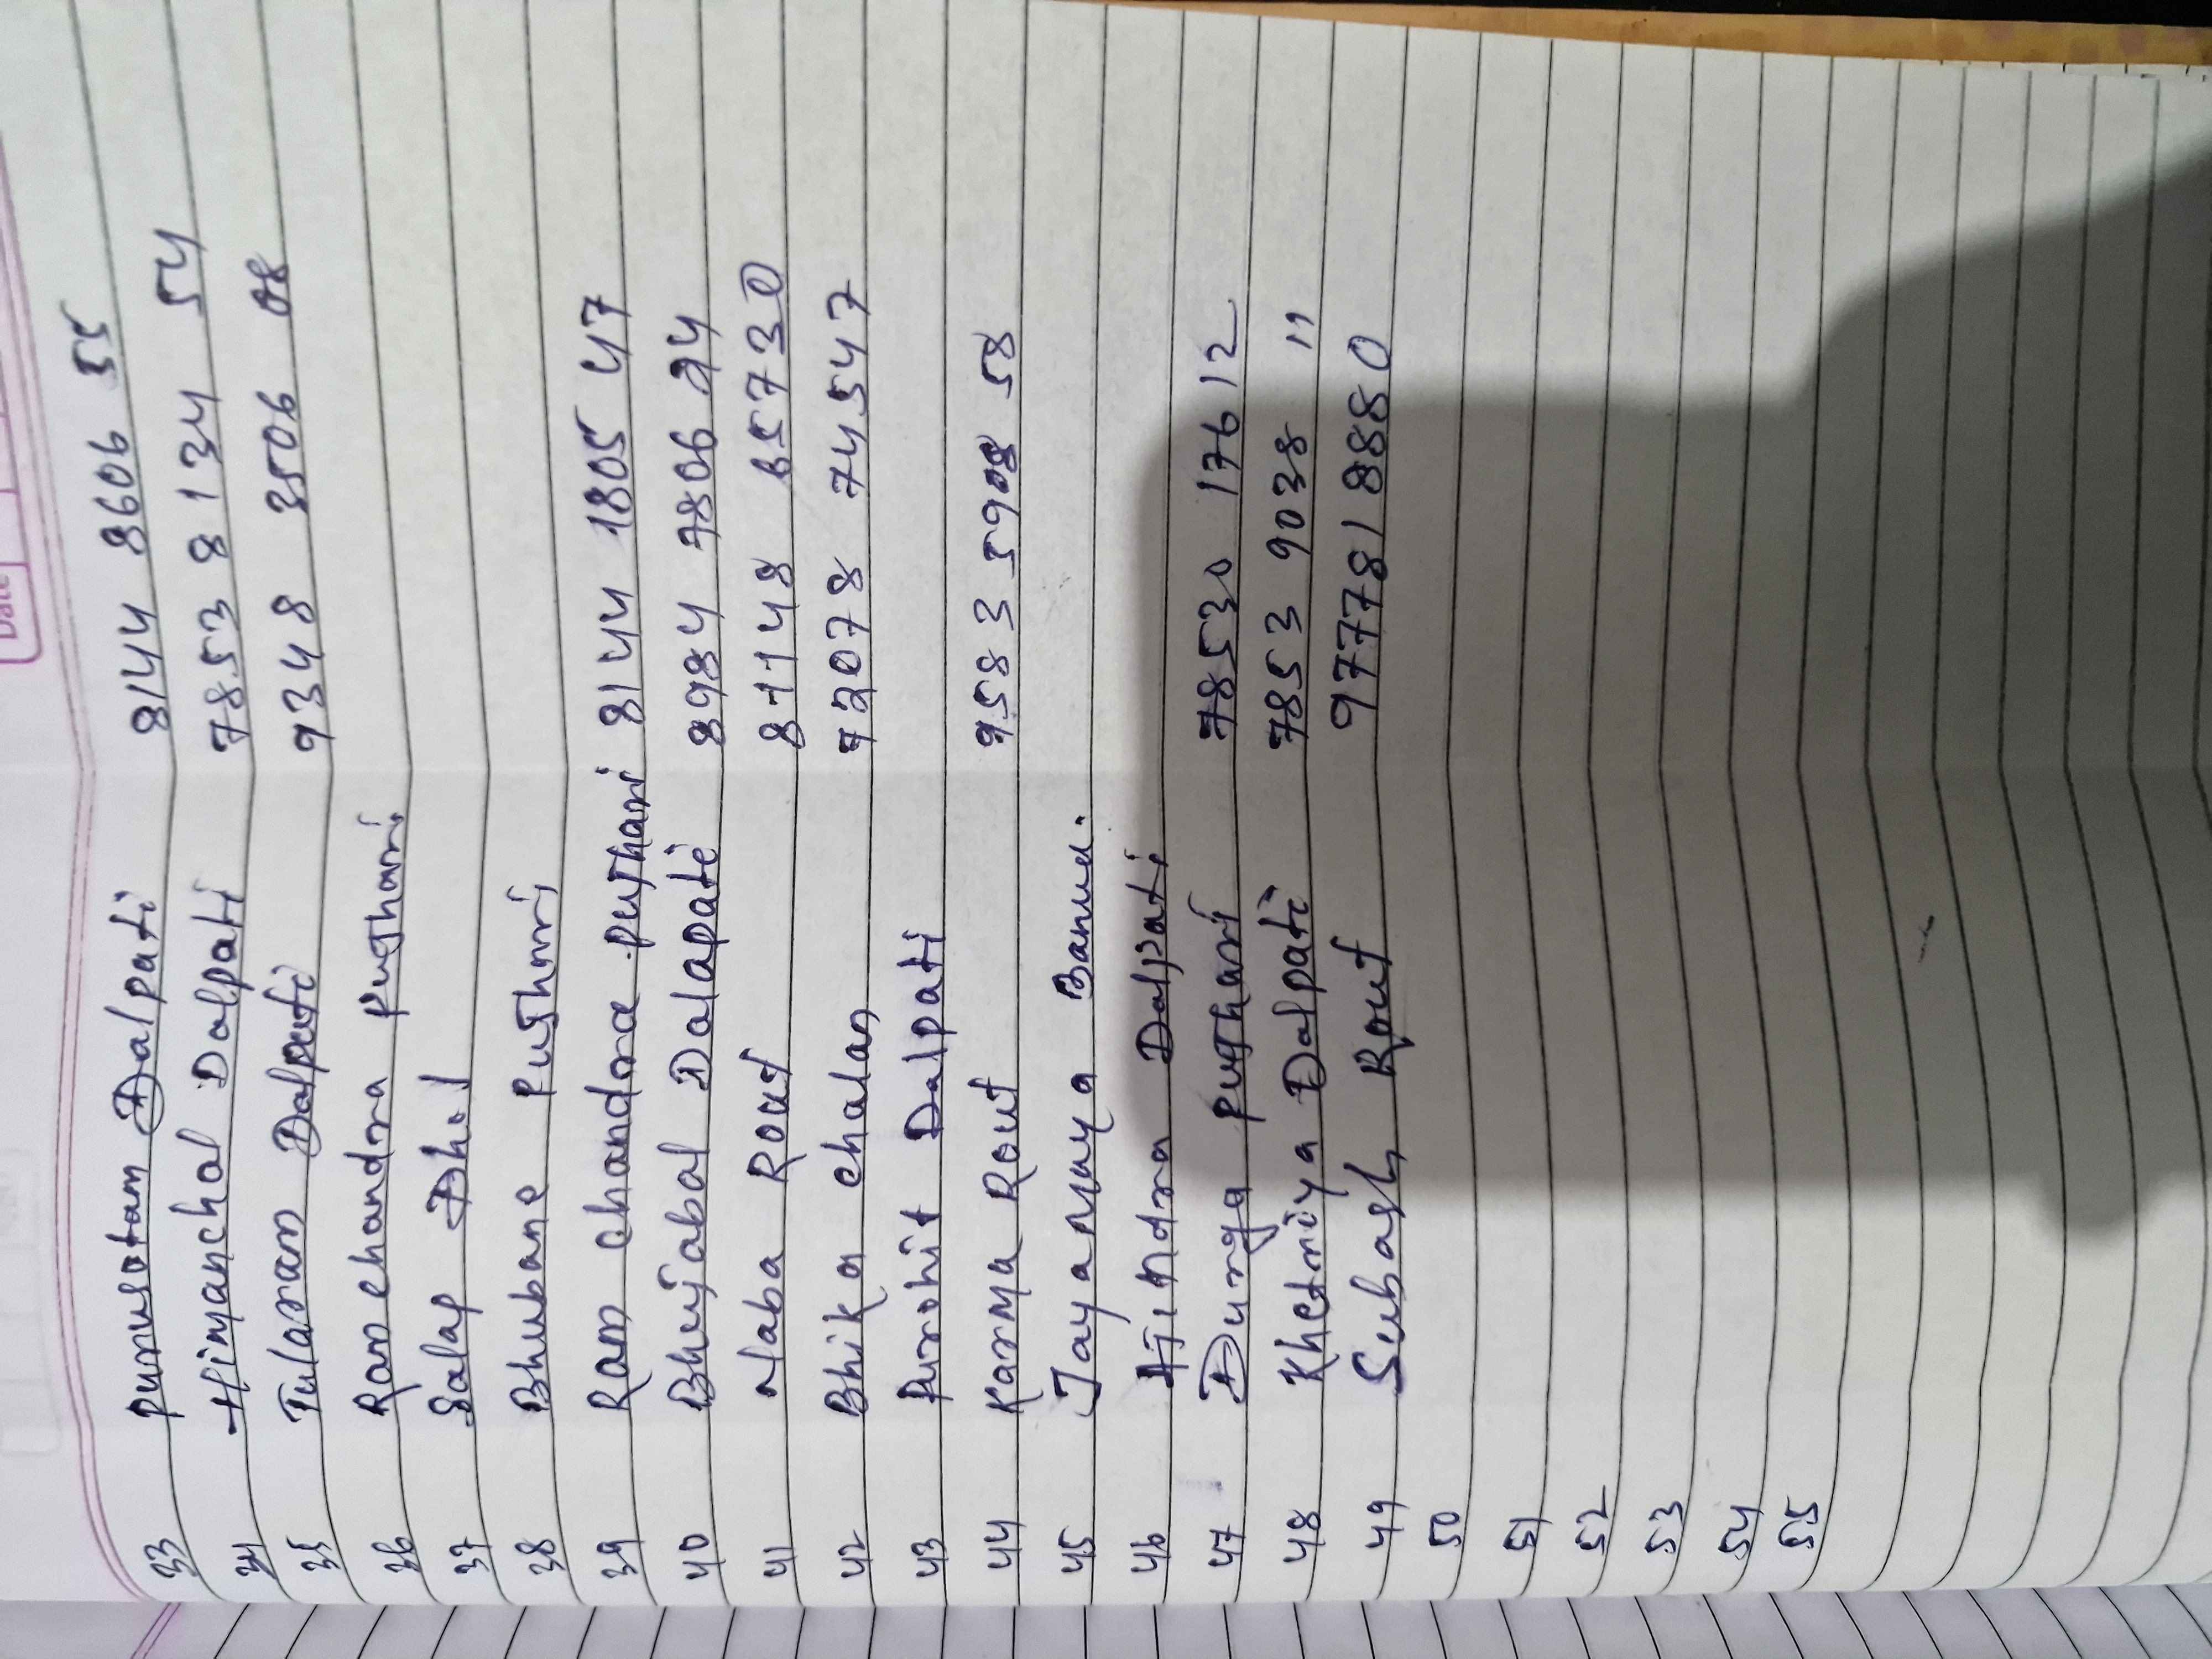 Date
33 Purusotam Dalpati 8144 8606 55
34 Himanchal Dalpati 7853 8134 54
35 Tularam Dalpati 9348 3506 08
36 Ram chandra Pujhari
37 Salap Dhol
38 Bhubane Pujhari
39 Ram chandra pujhari 8144 1805 47
40 Bhujabal Dalapati 8984 7806 24
41 Naba Rout 81148 65730
42 Bhika chalan 72078 74547
43 Purohit Dalpati
44 Karma Rout 9583 5908 58
45 Jayamaya
46 Ajindra Dalpati
47 Durga Pujhari 78530 17612
48 Khetriya Dalpati 7853 9038 11
49 Subash Rout 9777818880
50
51
52
53
54
55